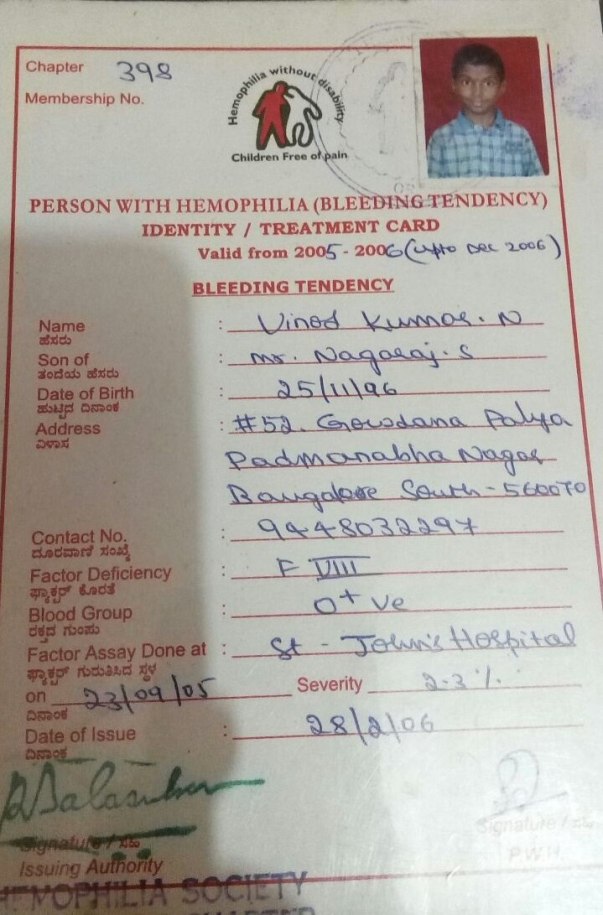 Chapter 398
Membership No.
Hemophilia without disability
Children Free of pain
PERSON WITH HEMOPHILIA (BLEEDING TENDENCY)
IDENTITY / TREATMENT CARD
Valid from 2005 - 2006 (upto Dec 2006)
BLEEDING TENDENCY
Name : Vinod Kumar. N
ಹೆಸರು
Son of : Mr. Nagaraj. S
ತಂದೆಯ ಹೆಸರು
Date of Birth : 25/11/96
ಹುಟ್ಟಿದ ದಿನಾಂಕ
Address : #52. Gowdana Palya
ವಿಳಾಸ
Padmanabha Nagar
Bangalore South - 560070
Contact No. : 9448032297
ದೂರವಾಣಿ ಸಂಖ್ಯೆ
Factor Deficiency : F VIII
ಫ್ಯಾಕ್ಟರ್ ಕೊರತೆ
Blood Group : O+ ve
ರಕ್ತದ ಗುಂಪು
Factor Assay Done at : St - John's Hospital
ಫ್ಯಾಕ್ಟರ್ ಗುರುತಿಸಿದ ಸ್ಥಳ
on 23/09/05 Severity 2-3 %
ದಿನಾಂಕ
Date of Issue : 28/2/06
ದಿನಾಂಕ
Signature / ಸಹಿ
Signature / ಸಹಿ
Issuing Authority
P.W.H
HEMOPHILIA SOCIETY
CHAPTER